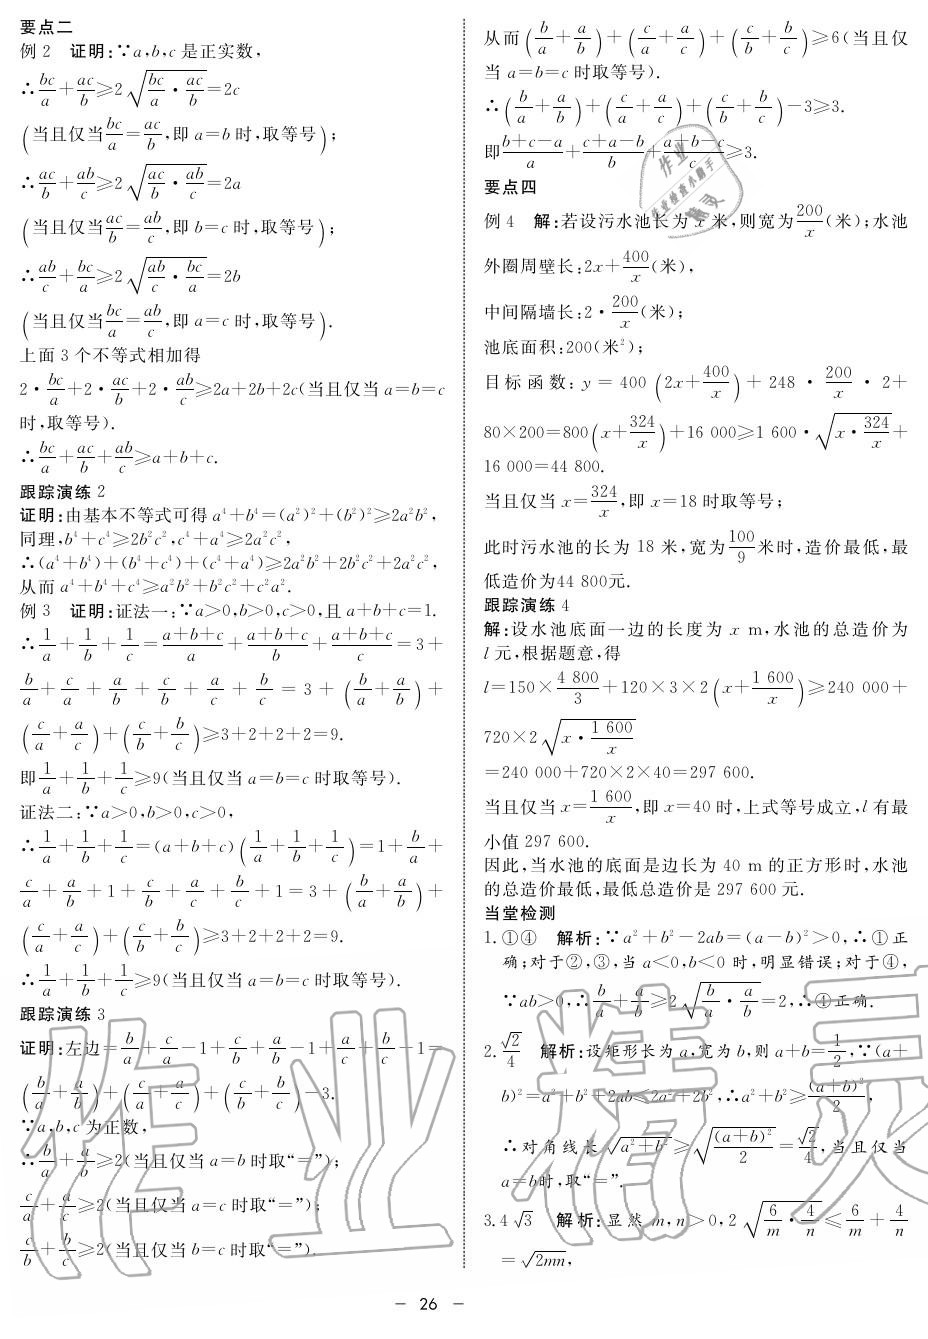 要点二
例2　证明:∵a,b,c是正实数,
∴bc/a+ac/b≥2√(bc/a·ac/b)=2c
(当且仅当bc/a=ac/b,即a=b时,取等号);
∴ac/b+ab/c≥2√(ac/b·ab/c)=2a
(当且仅当ac/b=ab/c,即b=c时,取等号);
∴ab/c+bc/a≥2√(ab/c·bc/a)=2b
(当且仅当bc/a=ab/c,即a=c时,取等号).
上面3个不等式相加得
2·bc/a+2·ac/b+2·ab/c≥2a+2b+2c(当且仅当a=b=c
时,取等号).
∴bc/a+ac/b+ab/c≥a+b+c.
跟踪演练2
证明:由基本不等式可得a⁴+b⁴=(a²)²+(b²)²≥2a²b²,
同理,b⁴+c⁴≥2b²c²,c⁴+a⁴≥2a²c²,
∴(a⁴+b⁴)+(b⁴+c⁴)+(c⁴+a⁴)≥2a²b²+2b²c²+2a²c²,
从而a⁴+b⁴+c⁴≥a²b²+b²c²+c²a².
例3　证明:证法一:∵a>0,b>0,c>0,且a+b+c=1.
∴1/a+1/b+1/c=(a+b+c)/a+(a+b+c)/b+(a+b+c)/c=3+
b/a+c/a+a/b+c/b+a/c+b/c=3+(b/a+a/b)+
(c/a+a/c)+(c/b+b/c)≥3+2+2+2=9.
即1/a+1/b+1/c≥9(当且仅当a=b=c时取等号).
证法二:∵a>0,b>0,c>0,
∴1/a+1/b+1/c=(a+b+c)(1/a+1/b+1/c)=1+b/a+
c/a+a/b+1+c/b+a/c+b/c+1=3+(b/a+a/b)+
(c/a+a/c)+(c/b+b/c)≥3+2+2+2=9.
∴1/a+1/b+1/c≥9(当且仅当a=b=c时取等号).
跟踪演练3
证明:左边=b/a+c/a-1+c/b+a/b-1+a/c+b/c-1=
(b/a+a/b)+(c/a+a/c)+(c/b+b/c)-3.
∵a,b,c为正数,
∴b/a+a/b≥2(当且仅当a=b时取“=”);
c/a+a/c≥2(当且仅当a=c时取“=”);
c/b+b/c≥2(当且仅当b=c时取“=”).
从而(b/a+a/b)+(c/a+a/c)+(c/b+b/c)≥6(当且仅
当a=b=c时取等号).
∴(b/a+a/b)+(c/a+a/c)+(c/b+b/c)-3≥3.
即(b+c-a)/a+(c+a-b)/b+(a+b-c)/c≥3.
要点四
例4　解:若设污水池长为x米,则宽为200/x(米);水池
外圈周壁长:2x+400/x(米),
中间隔墙长:2·200/x(米);
池底面积:200(米²);
目标函数:y=400(2x+400/x)+248·200/x·2+
80×200=800(x+324/x)+16 000≥1 600·√(x·324/x)+
16 000=44 800.
当且仅当x=324/x,即x=18时取等号;
此时污水池的长为18米,宽为100/9米时,造价最低,最
低造价为44 800元.
跟踪演练4
解:设水池底面一边的长度为x m,水池的总造价为
l元,根据题意,得
l=150×4 800/3+120×3×2(x+1 600/x)≥240 000+
720×2√(x·1 600/x)
=240 000+720×2×40=297 600.
当且仅当x=1 600/x,即x=40时,上式等号成立,l有最
小值297 600.
因此,当水池的底面是边长为40 m的正方形时,水池
的总造价最低,最低总造价是297 600元.
当堂检测
1.①④　解析:∵a²+b²-2ab=(a-b)²>0,∴①正
确;对于②,③,当a<0,b<0时,明显错误;对于④,
∵ab>0,∴b/a+a/b≥2√(b/a·a/b)=2,∴④正确.
2.√2/4　解析:设矩形长为a,宽为b,则a+b=1/2,∵(a+
b)²=a²+b²+2ab≤2a²+2b²,∴a²+b²≥(a+b)²/2,
∴对角线长√(a²+b²)≥√((a+b)²/2)=√2/4,当且仅当
a=b时,取“=”.
3.4√3　解析:显然m,n>0,2√(6/m·4/n)≤6/m+4/n
=√(2mn),
— 26 —
作业
作业检查小助手
精灵
作业精灵